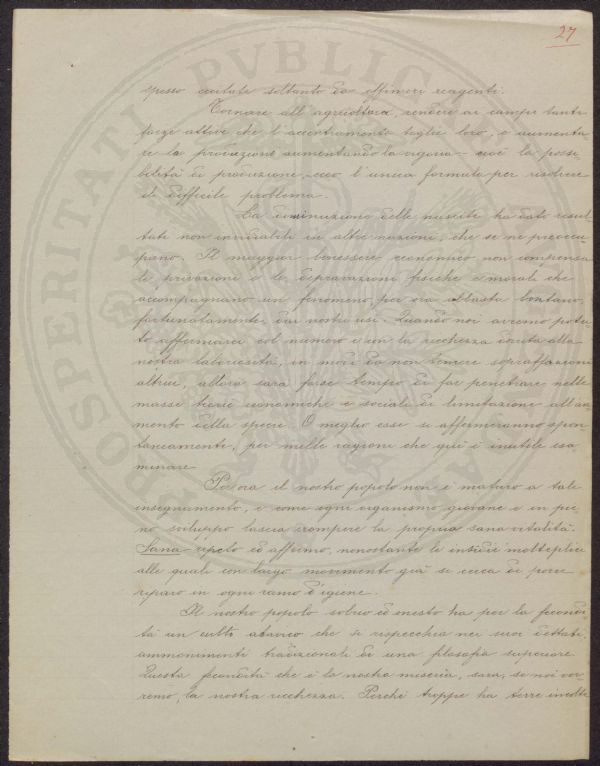 27
spesso eccitate soltanto da effimeri reagenti.
Tornare all'agricoltura, rendere ai campi tante
forze attive che l'accentramento toglie loro, e aumenta-
re la produzione aumentando la vigoria - cioè la possi-
bilità di produzione, ecco l'unica formula per risolvere
il difficile problema.
La diminuzione delle nascite ha dato resul-
tati non invidiabili in altre nazioni, che se ne preoccu-
pano. Il maggior benessere economico non compensa
le privazioni e le depravazioni fisiche e morali che
accompagnano un fenomeno, per ora abbasta lontano,
fortunatamente, dai nostri usi. Quando noi avremo potu-
to affermarci col numero e con la ricchezza dovuta alla
nostra laboriosità, in modo da non temere sopraffazioni
altrui, allora sarà forse tempo di far penetrare nelle
masse teorie economiche e sociali di limitazione all'au-
mento della specie. O meglio esse si affermeranno spon-
taneamente, per mille ragioni che qui è inutile esa-
minare.
Per ora il nostro popolo non è maturo a tale
insegnamento, e come ogni organismo giovane e in pie-
no sviluppo lascia irrompere la propria sana vitalità.
Sana - ripeto ed affermo, nonostante le insidie molteplici
alle quali con largo movimento già si cerca di porre
riparo in ogni ramo d'igiene.
Il nostro popolo sobrio ed onesto ha per la fecondi-
tà un culto atavico che si rispecchia nei suoi dettati,
ammonimenti tradizionali di una filosofia superiore.
Questa fecondità che è la nostra miseria, sarà, se noi vor-
remo, la nostra ricchezza. Perchè troppe ha terre incolte
PROSPERITATI PVBLIC